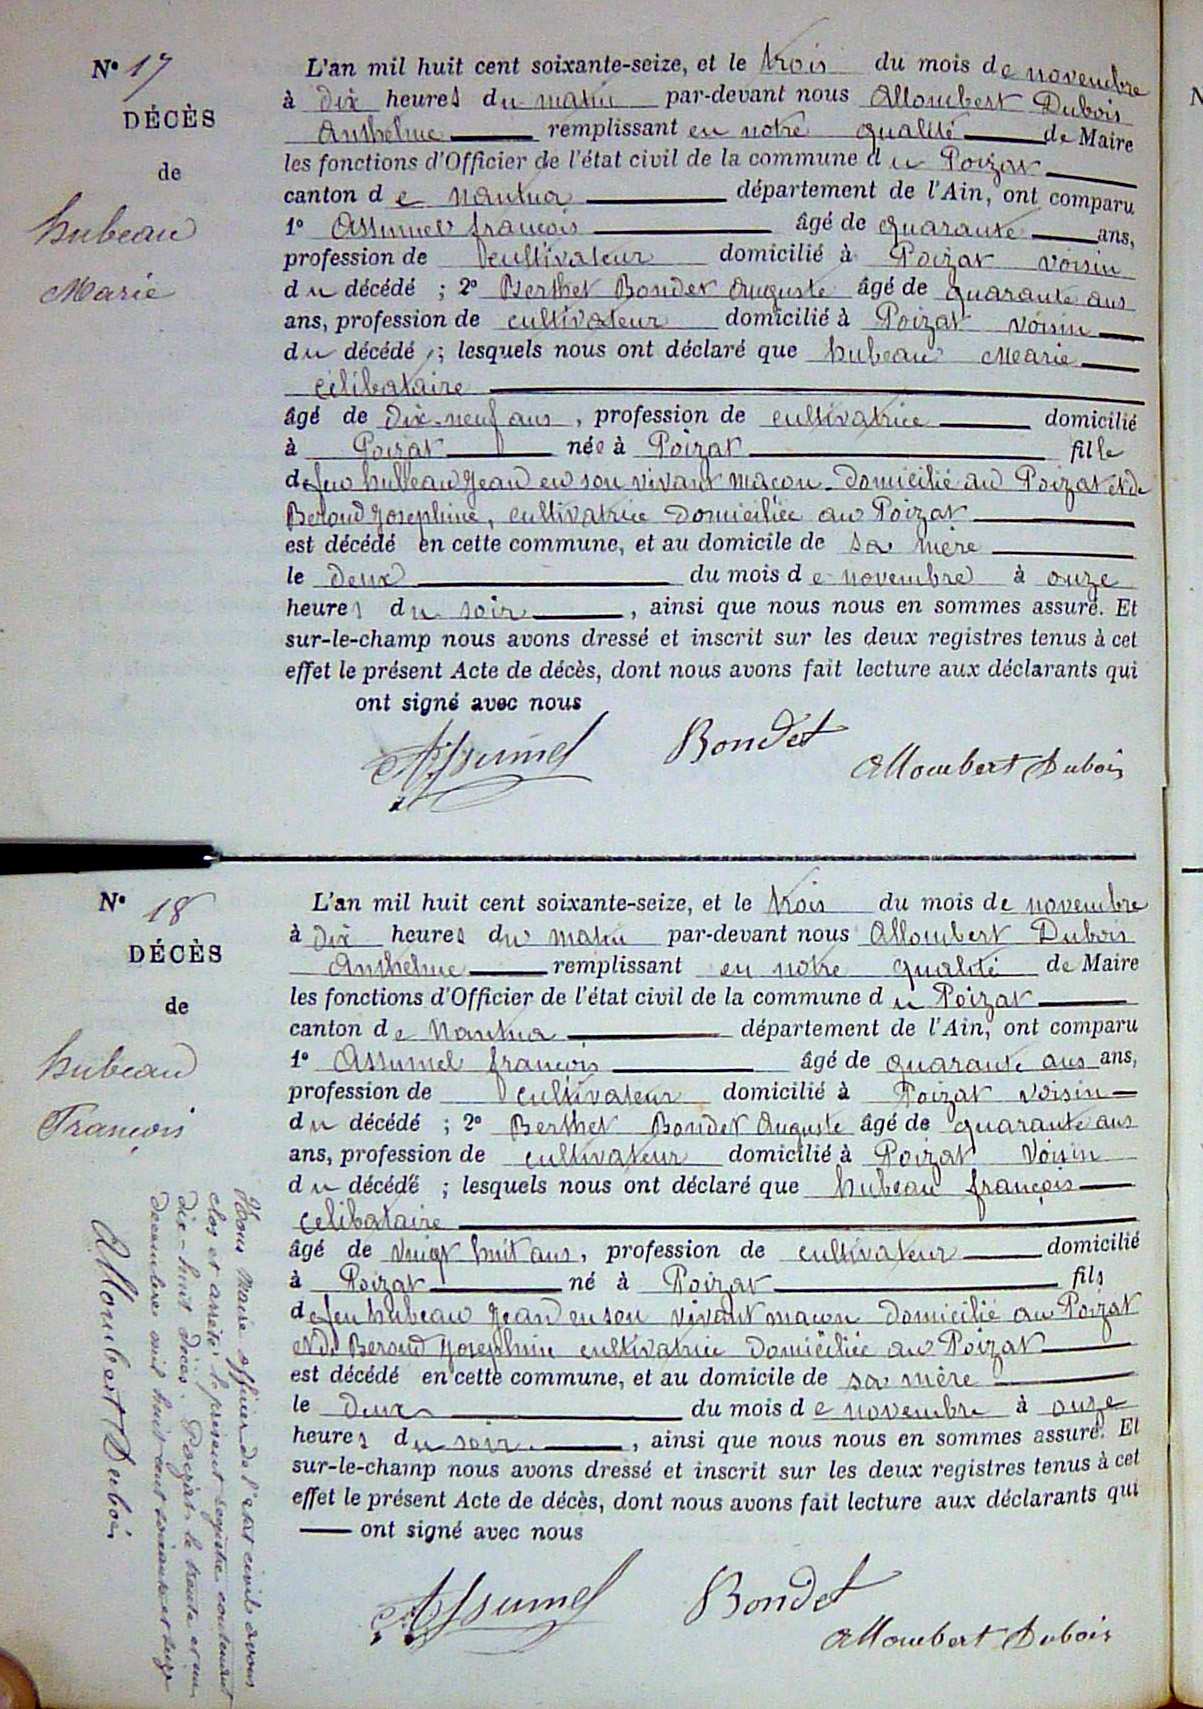 N° 17
DÉCÈS
de
hubeau
Marie
L'an mil huit cent soixante-seize, et le trois du mois de novembre
à dix heures du matin par-devant nous Allombert Dubois
Anthelme remplissant en notre qualité de Maire
les fonctions d'Officier de l'état civil de la commune du Poizat
canton de Nantua département de l'Ain, ont comparu
1° Assumel françois âgé de quarante ans,
profession de cultivateur domicilié à Poizat voisin
du décédé ; 2° Berthet Bondet Auguste âgé de quarante ans
ans, profession de cultivateur domicilié à Poizat voisin
du décédé ; lesquels nous ont déclaré que hubeau Marie
célibataire
âgé de dix-neuf ans, profession de cultivatrice domicilié
à Poizat née à Poizat fille
de feu hubeau Jean en son vivant maçon domicilié au Poizat et de
Beroud Josephine, cultivatrice domiciliée au Poizat
est décédé en cette commune, et au domicile de sa mère
le deux du mois de novembre à onze
heures du soir, ainsi que nous nous en sommes assuré. Et
sur-le-champ nous avons dressé et inscrit sur les deux registres tenus à cet
effet le présent Acte de décès, dont nous avons fait lecture aux déclarants qui
ont signé avec nous
Assumel Bondet Allombert Dubois
N° 18
DÉCÈS
de
hubeau
François
L'an mil huit cent soixante-seize, et le trois du mois de novembre
à dix heures du matin par-devant nous Allombert Dubois
Anthelme remplissant en notre qualité de Maire
les fonctions d'Officier de l'état civil de la commune du Poizat
canton de Nantua département de l'Ain, ont comparu
1° Assumel françois âgé de quarante ans ans,
profession de cultivateur domicilié à Poizat voisin
du décédé ; 2° Berthet Bondet Auguste âgé de quarante ans
ans, profession de cultivateur domicilié à Poizat voisin
du décédé ; lesquels nous ont déclaré que hubeau françois
celibataire
âgé de vingt huit ans, profession de cultivateur domicilié
à Poizat né à Poizat fils
de feu hubeau Jean en son vivant maçon domicilié au Poizat
et de Beroud Josephine cultivatrice domiciliée au Poizat
est décédé en cette commune, et au domicile de sa mère
le deux du mois de novembre à onze
heures du soir, ainsi que nous nous en sommes assuré. Et
sur-le-champ nous avons dressé et inscrit sur les deux registres tenus à cet
effet le présent Acte de décès, dont nous avons fait lecture aux déclarants qui
ont signé avec nous
Assumel Bondet
Allombert Dubois
Nous Maire officier de l'etat civil avons
clos et arrêté le présent registre contenant
dix-huit décès. Poizat le trente et un
decembre mil huit cent soixante et seize
Allombert Dubois